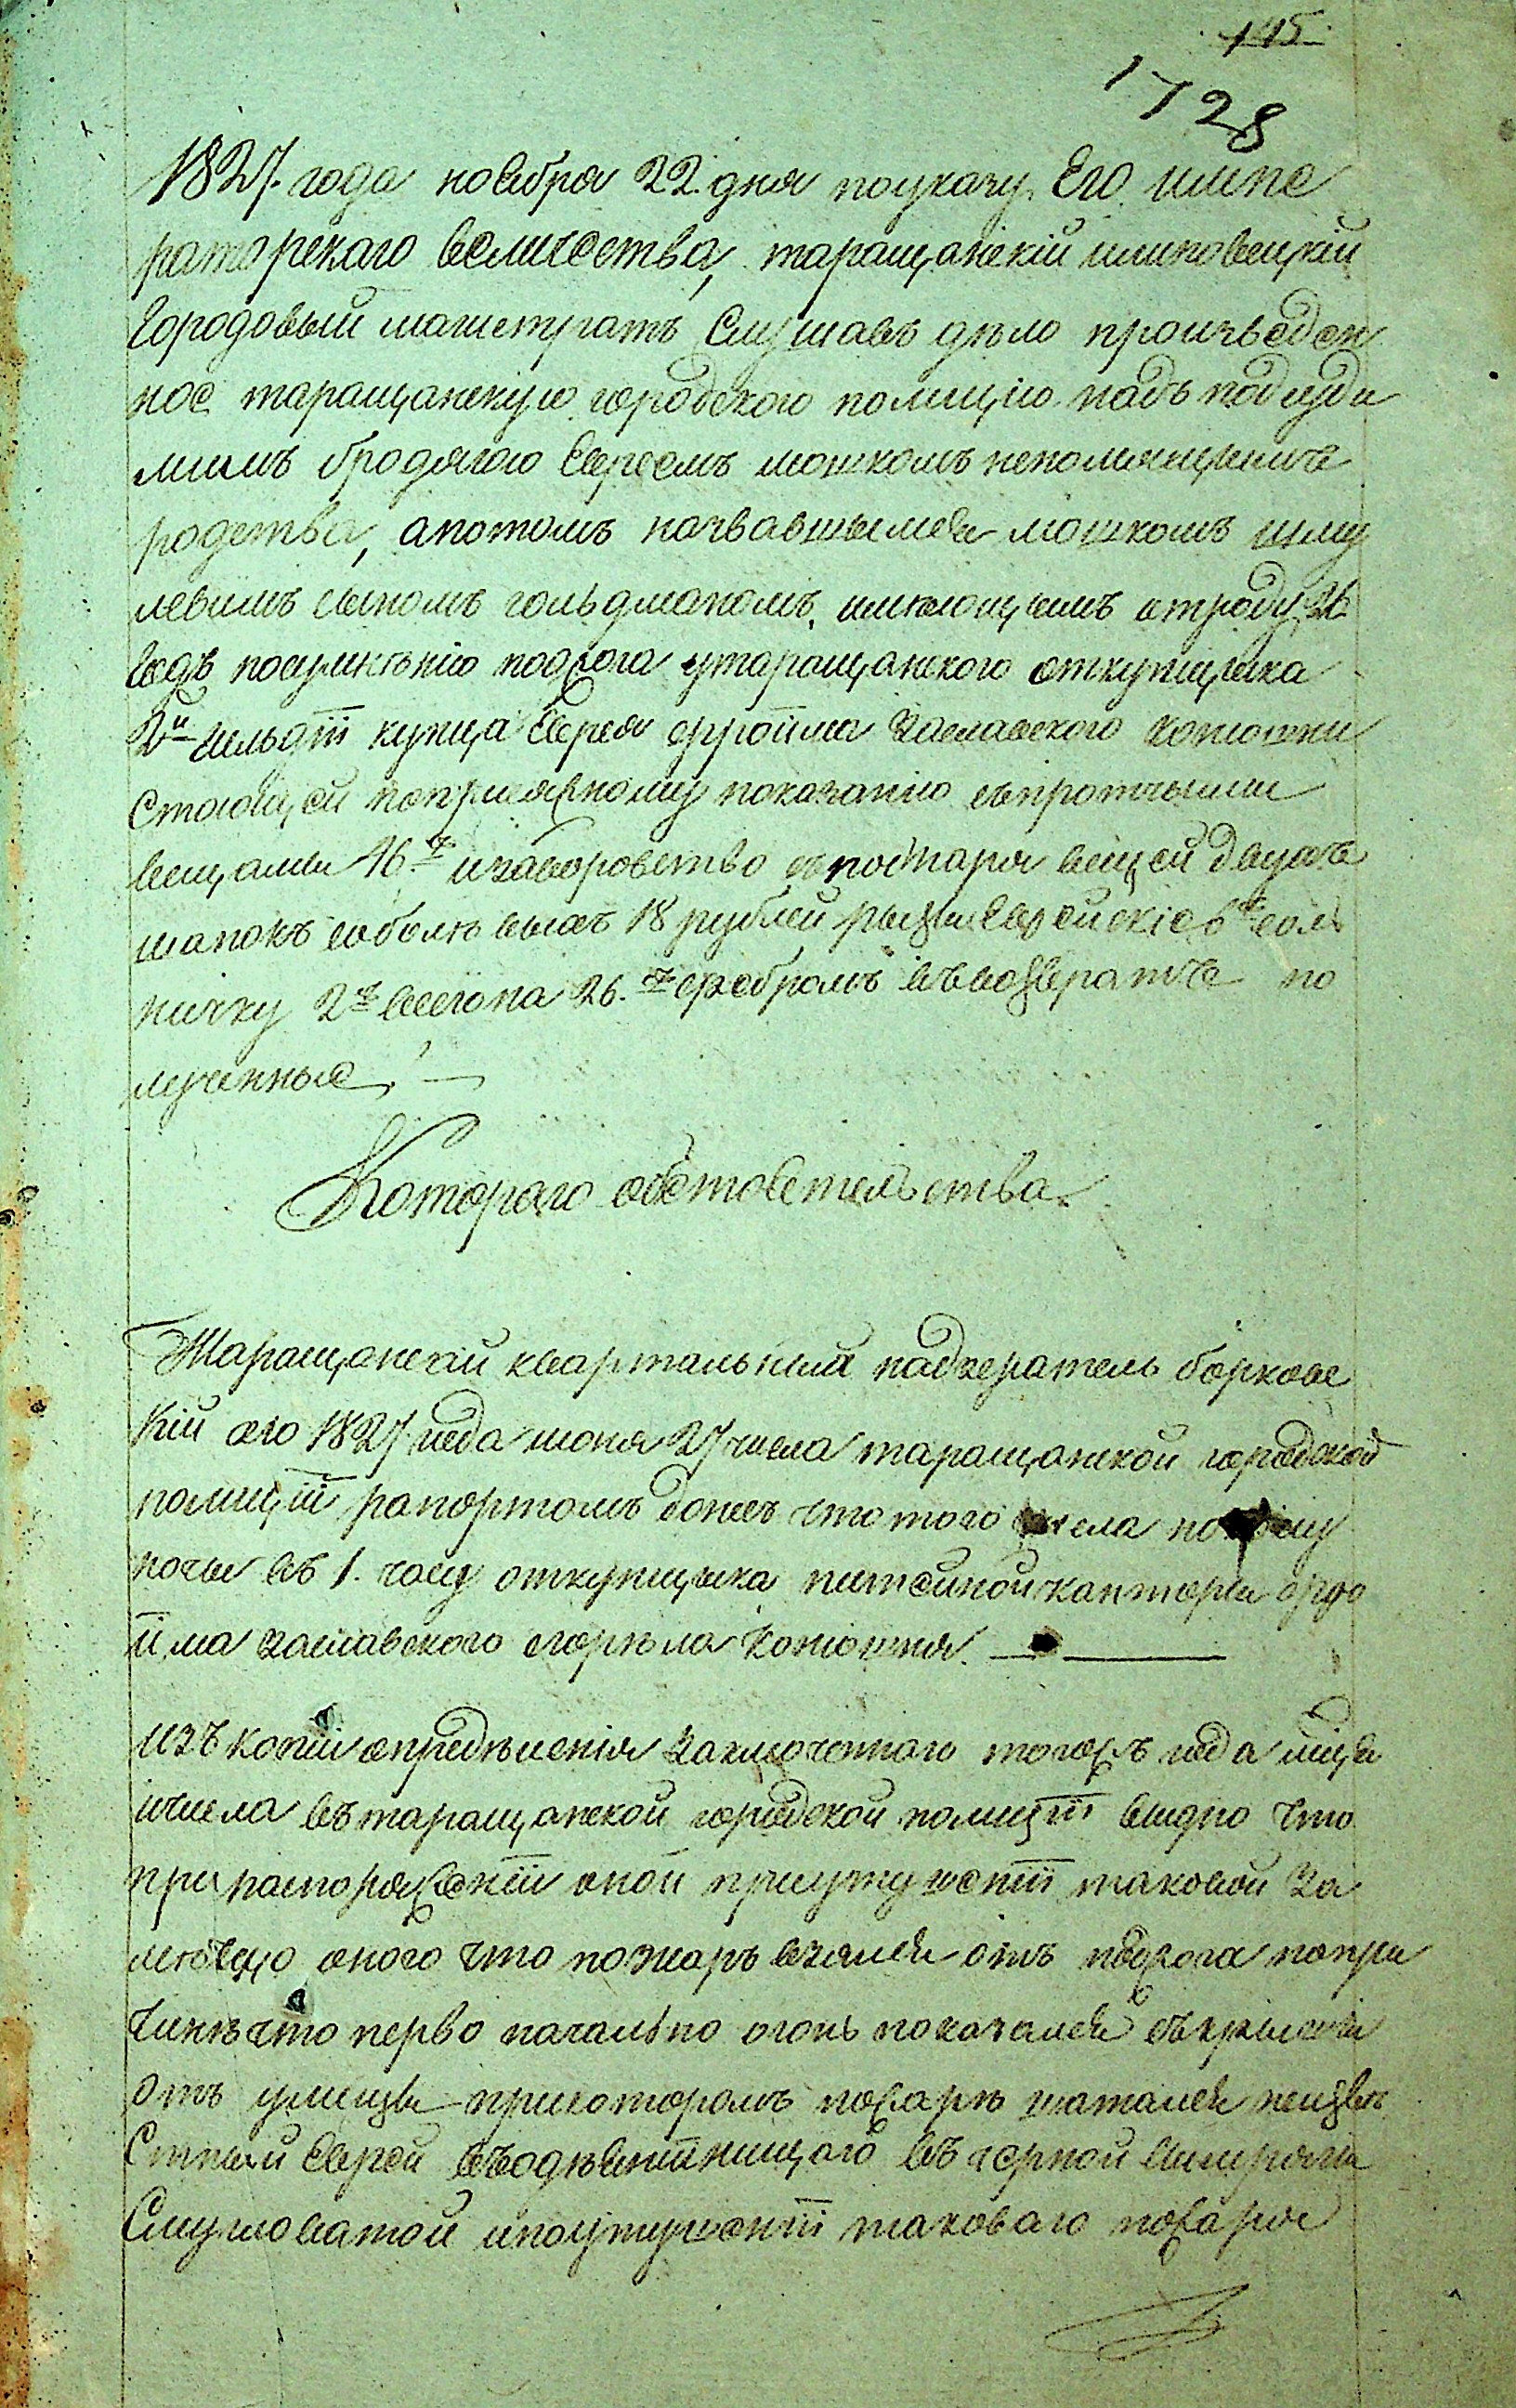 145.
1728
1827. года ноября 22. дня поуказу Его импе
раторскаго величества, таращанскій илиповецкій
Городовый магистратъ Слушавъ дѣло произведен
ное таращанскую городскою полицію надъ подсуди
мымъ бродягою Евреемъ мошкомъ непомнящимъ
родства, апотомъ назвавшымся мошкомъ шму
левымъ сыномъ гольдманомъ, имѣющымъ отроду 26
Годъ посумнѣнію поджога утаращанского откупщыка
2й гильдіи купца Еврея фроима Заславского конюшни
Стоющей попримѣрному показанію съпротчыми
вещамы 16 изаворовство спожара вещей двухъ
шапокъ соболѣвыхъ 18 рублей рызы Еврейскіе 6
ничку 2 всегона 26. серебромъ въвозвратъ по
лученные. —
Котораго обстоятельства.
Таращанскій квартальный надзератель борковс
кій сего 1827 года июня 27 числа таращанской городской
полиціи рапортомъ донесъ что того числа по
ночы въ 1. часу откупщыка питейной канторы фро
има заславского сгорѣла Конюшня. —
изъ копіи опредѣленія Заключотого тогожъ года мсца
ичисла въ таращанской городской полиціи выдно что
при распоряженіи оной приутушеніи таковой За
мѣчено оного что пожаръ взялся отъ поджога попри
чинѣ что перво начально огонь показался съкрышы
отъ улицы прикоторомъ пожарѣ шатался неизвѣ
Стный Еврей въодѣяніи нищого въ черной
Слуцковатой ипоутушеніи таковаго пожара